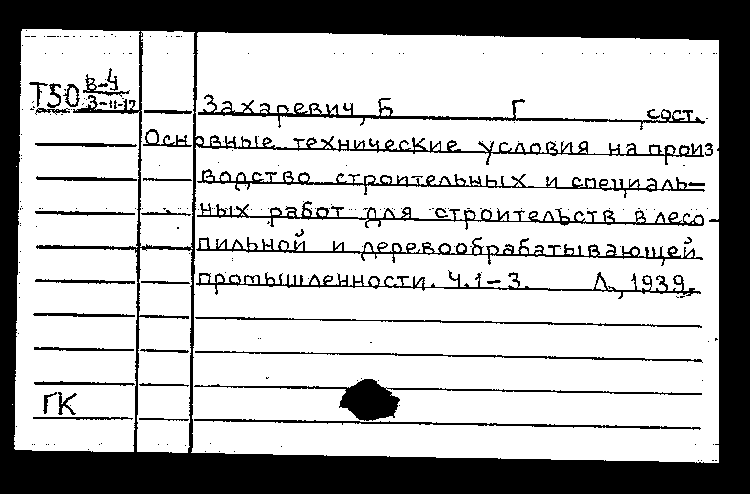 Т50 В-4
З-11-12
Захаревич, Б Г , сост.
Основные технические условия на произ-
водство строительных и специаль=
ных работ для строительств в лесо-
пильной и деревообрабатывающей
промышленности. Ч.1-3. Л., 1939.
ГК